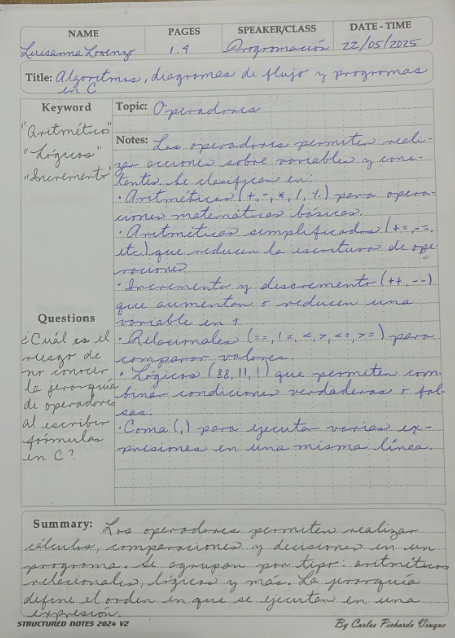 NAME PAGES SPEAKER/CLASS DATE - TIME
Luisanna Lorenzo 1.4 Programación 22/05/2025
Title: Algoritmos, diagramas de flujo y programas
en C
Keyword
"Aritmético"
"Lógicos"
"Incremento"
Topic: Operadores
Notes: Los operadores permiten reali-
zar acciones sobre variables y cons-
tantes. Se clasifican en:
• Aritméticos (+, -, *, /, %) para opera-
ciones matemáticas básicas.
• Aritméticos simplificados (+=, -=,
etc) que reducen la escritura de ope
raciones
• Incremento y decremento (++, --)
que aumentan o reducen una
variable en 1
• Relacionales (==, !=, <, >, <=, >=) para
comparar valores.
• Lógicos (&&, ||, !) que permiten com-
binar condiciones verdaderas o fal-
sas.
• Coma (,) para ejecutar varias ex-
presiones en una misma línea.
Questions
¿Cuál es el
riesgo de
no conocer
la jerarquía
de operadores
al escribir
fórmulas
en C?
Summary: Los operadores permiten realizar
cálculos, comparaciones y decisiones en un
programa. Se agrupan por tipo: aritméticos
relacionales, lógicos y más. La jerarquía
define el orden en que se ejecutan en una
expresión.
STRUCTURED NOTES 2024 V2 By Carlos Pichardo Vinque